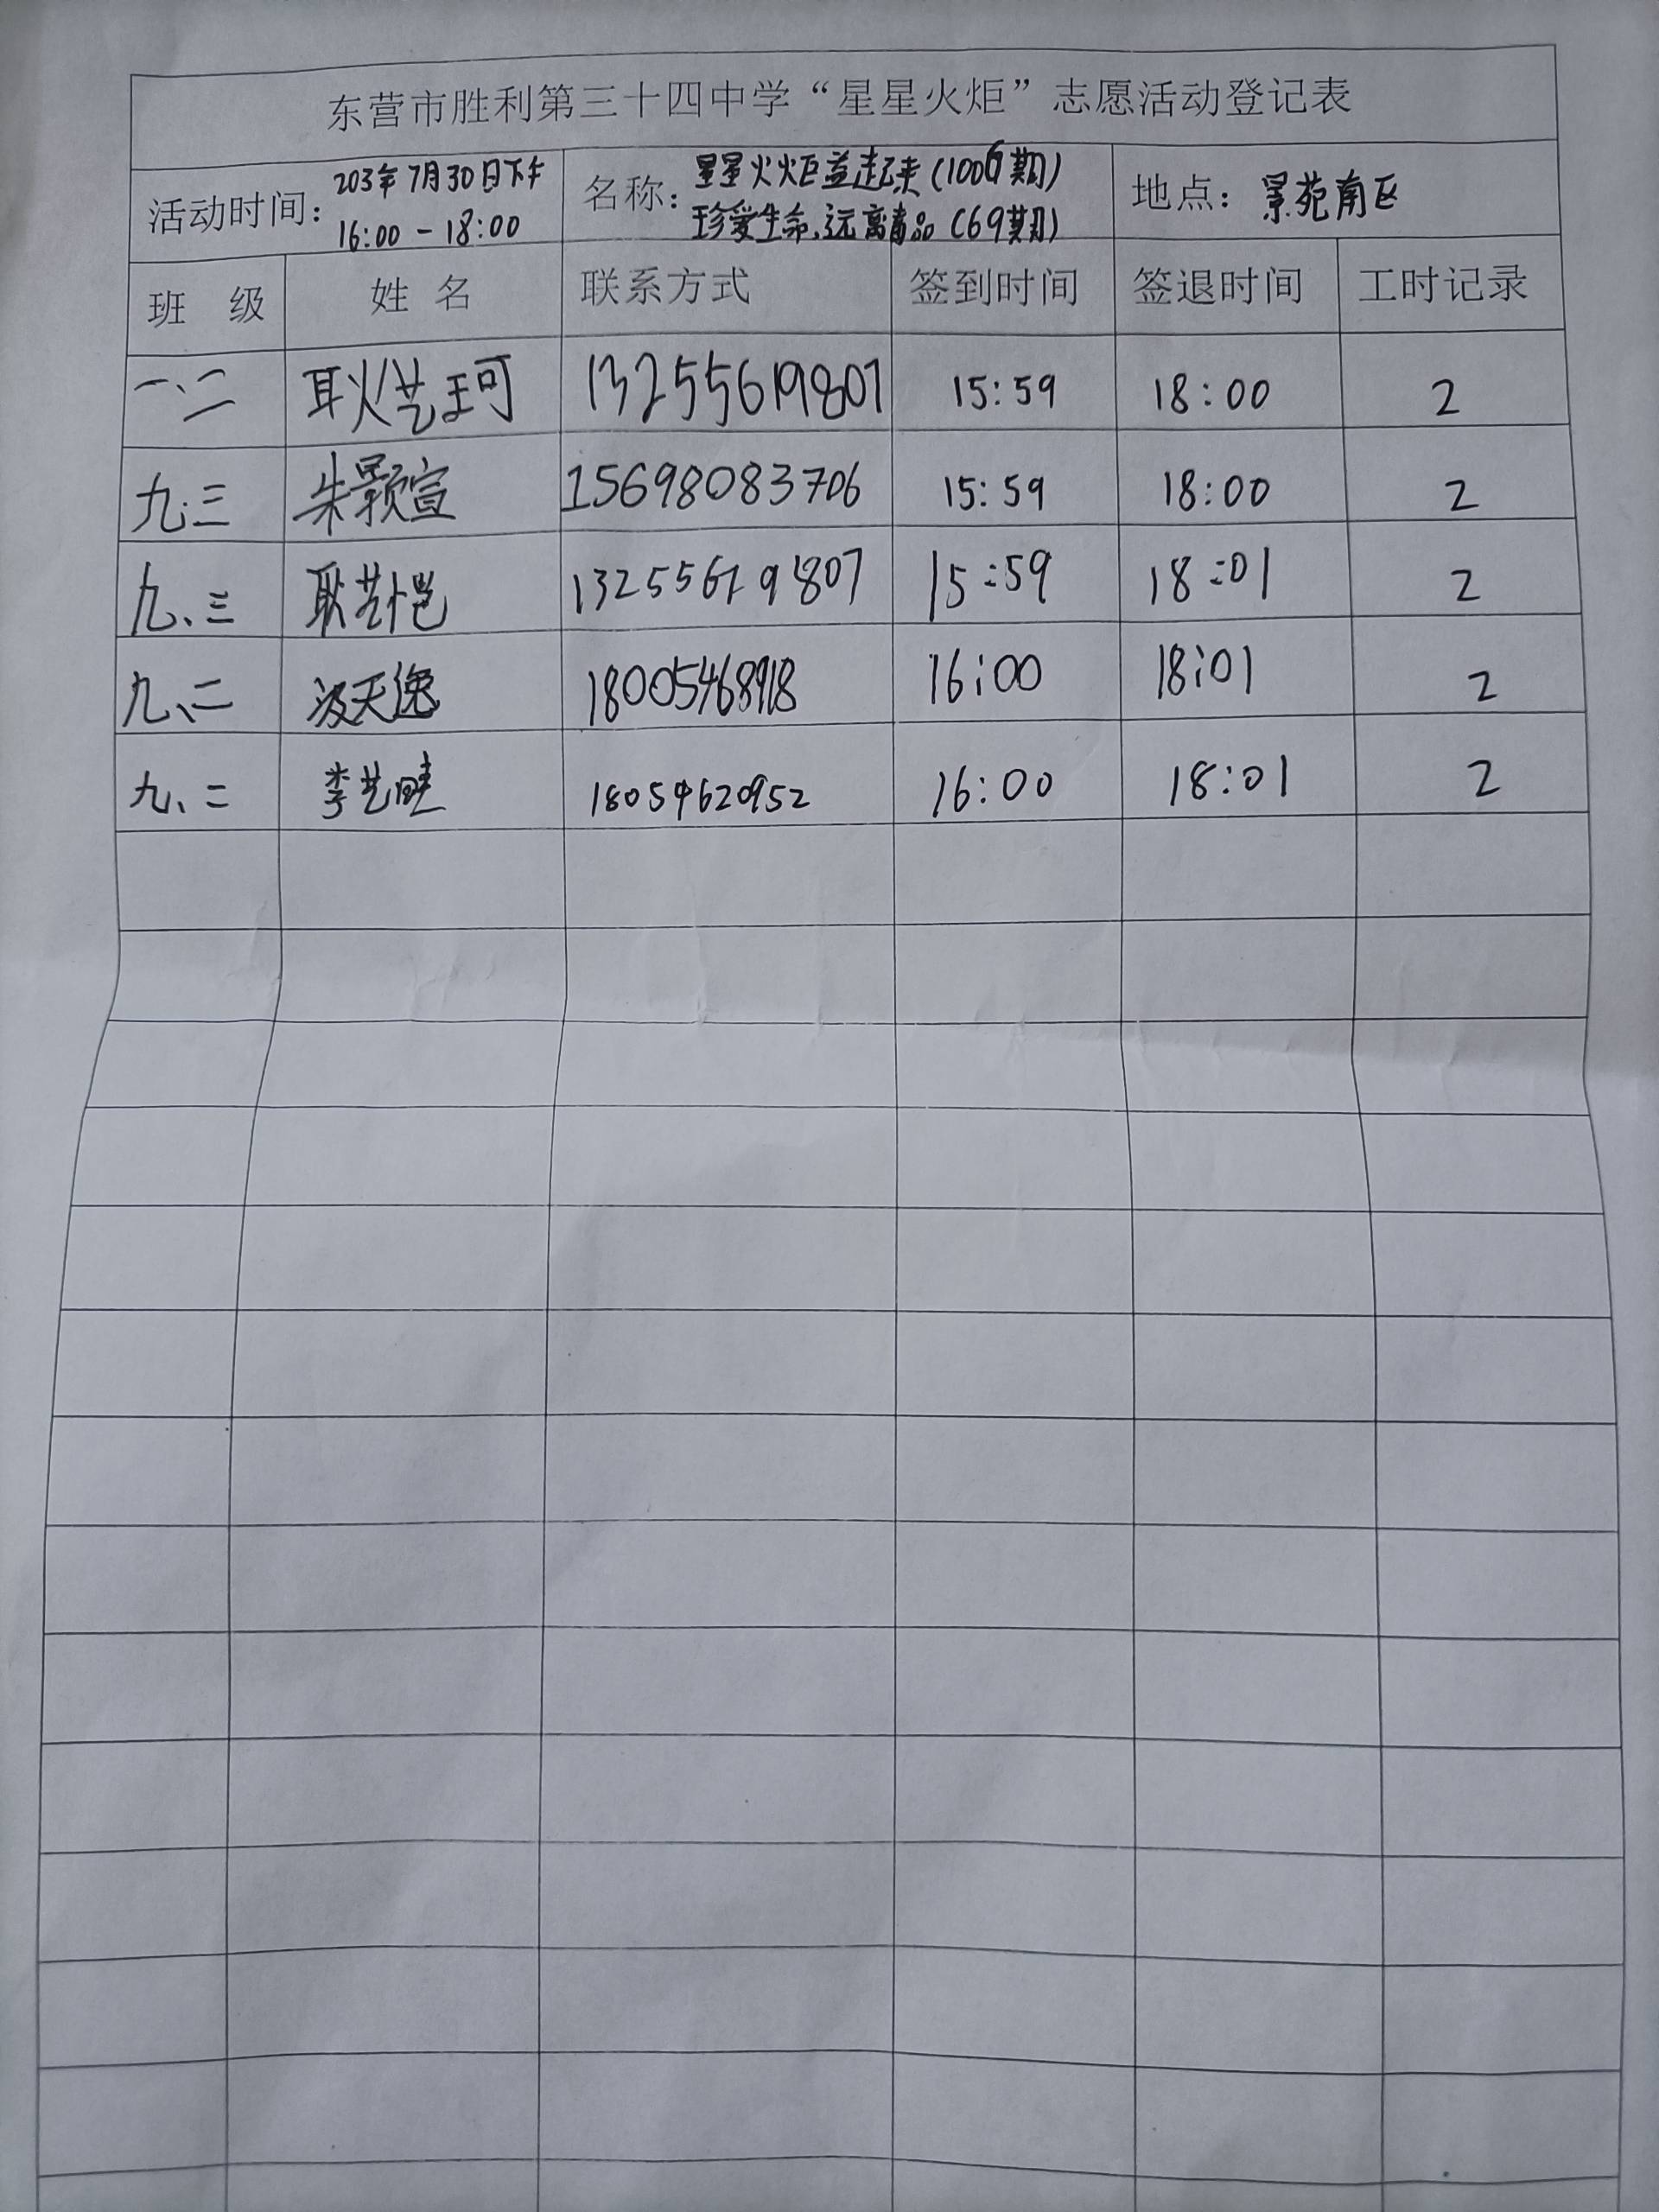 东营市胜利第三十四中学“星星火炬”志愿活动登记表
活动时间: 203年7月30日下午 16:00-18:00 名称: 星星火炬益起来(1006期) 珍爱生命、远离毒品(69期) 地点: 景苑南区
班 级 姓 名 联系方式 签到时间 签退时间 工时记录
一、二 耿艺珂 13255619807 15:59 18:00 2
九.三 朱颢宣 15698083706 15:59 18:00 2
九、三 耿艺恺 13255619807 15:59 18:01 2
九、二 天逸 18005468918 16:00 18:01 2
九、二 李艺畦 18054620952 16:00 18:01 2